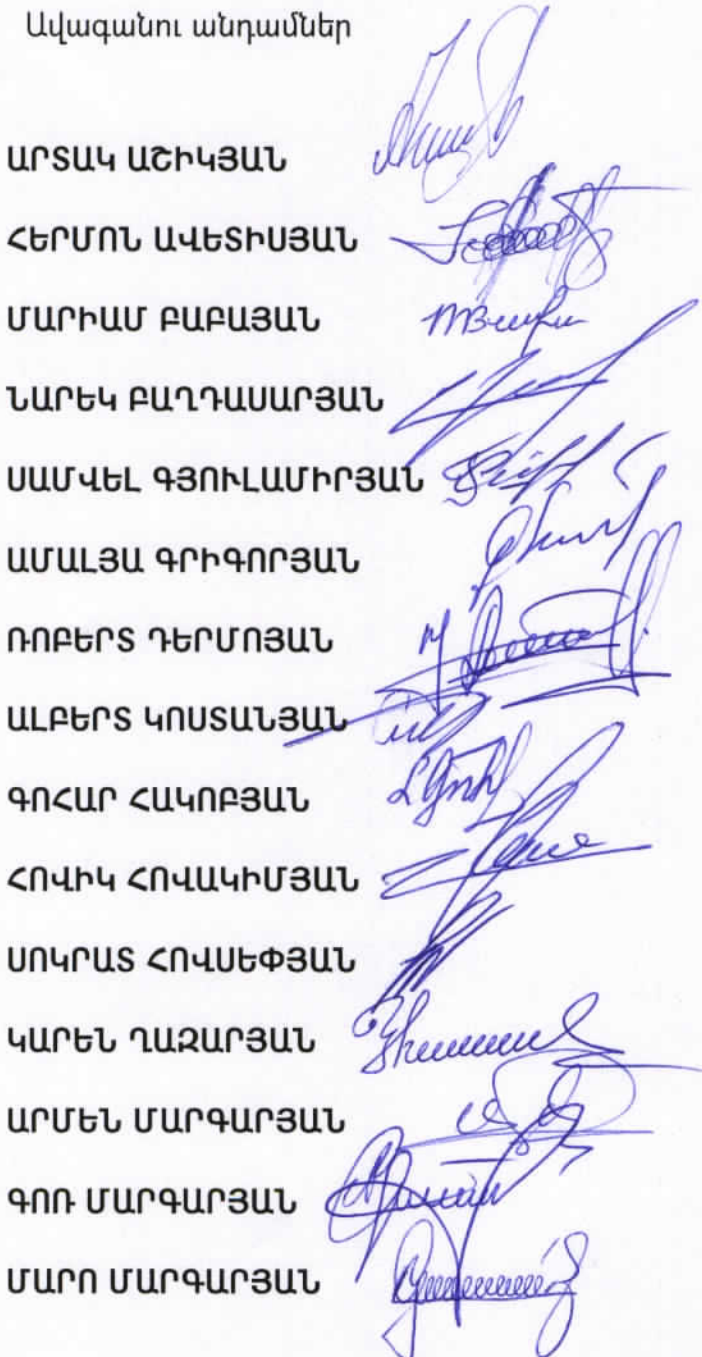 Ավագանու անդամներ
ԱՐՏԱԿ ԱՇԻԿՅԱՆ
ՀԵՐՄՈՆ ԱՎԵՏԻՍՅԱՆ
ՄԱՐԻԱՄ ԲԱԲԱՅԱՆ
ՆԱՐԵԿ ԲԱՂԴԱՍԱՐՅԱՆ
ՍԱՄՎԵԼ ԳՅՈՒԼԱՄԻՐՅԱՆ
ԱՄԱԼՅԱ ԳՐԻԳՈՐՅԱՆ
ՌՈԲԵՐՏ ԴԵՐՄՈՅԱՆ
ԱԼԲԵՐՏ ԿՈՍՏԱՆՅԱՆ
ԳՈՀԱՐ ՀԱԿՈԲՅԱՆ
ՀՈՎԻԿ ՀՈՎԱԿԻՄՅԱՆ
ՍՈԿՐԱՏ ՀՈՎՍԵՓՅԱՆ
ԿԱՐԵՆ ՂԱԶԱՐՅԱՆ
ԱՐՄԵՆ ՄԱՐԳԱՐՅԱՆ
ԳՈՌ ՄԱՐԳԱՐՅԱՆ
ՄԱՐՈ ՄԱՐԳԱՐՅԱՆ